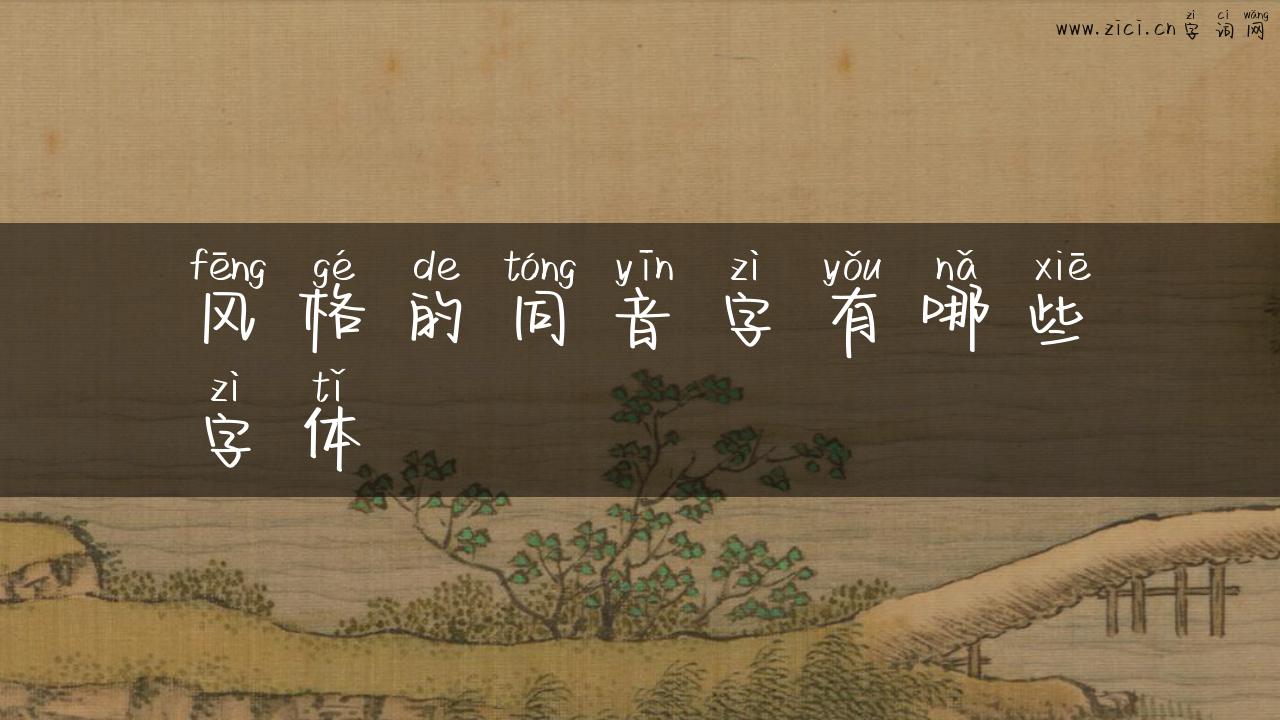 zì cí wǎng
www.zici.cn 字词网
fēng gé de tóng yīn zì yǒu nǎ xiē
风格的同音字有哪些
zì tǐ
字体